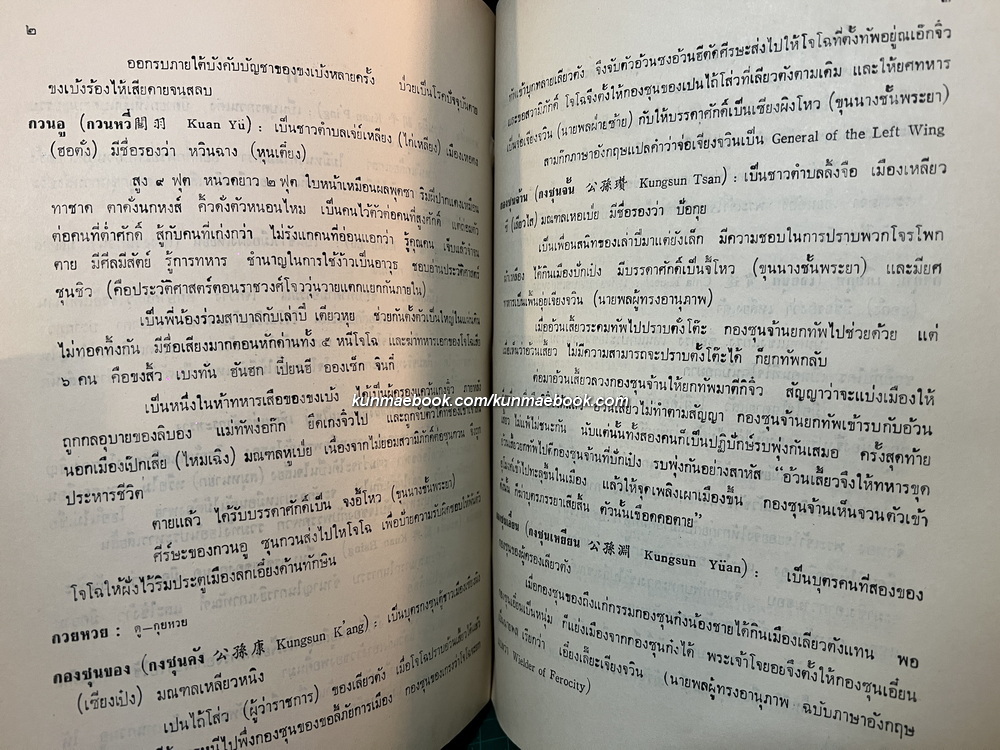 ๒
ออกรบภายใต้บังคับบัญชาของขงเบ้งหลายครั้ง ป่วยเป็นโรคปัจจุบันตาย
ขงเบ้งร้องไห้เสียดายจนสลบ
กวนอู (กวนหวี่ 關羽 Kuan Yü) : เป็นชาวตำบลเจย์เหลียง (ไก่เหลียง) เมืองเหอตง
(ฮอตั๋ง) มีชื่อรองว่า หวินฉาง (หุนเตี๋ยง)
สูง ๙ ฟุต หนวดยาว ๒ ฟุต ใบหน้าเหมือนผลพุดซา ริมฝีปากแดงเหมือน
ทาชาด ตาดั่งนกหงส์ คิ้วดั่งตัวหนอนไหม เป็นคนไว้ตัวต่อคนที่สูงศักดิ์ แต่ถ่อมตัว
ต่อคนที่ต่ำศักดิ์ สู้กับคนที่เก่งกว่า ไม่รังแกคนที่อ่อนแอกว่า รู้คุณคน เจ็บแล้วจำจน
ตาย มีศีลมีสัตย์ รู้การทหาร ชำนาญในการใช้ง้าวเป็นอาวุธ ชอบอ่านประวัติศาสตร์
ชุนชิว (คือประวัติศาสตร์ตอนราชวงศ์โจววุ่นวายแตกแยกกันภายใน)
เป็นพี่น้องร่วมสาบาลกับเล่าปี่ เตียวหุย ช่วยกันตั้งตัวเป็นใหญ่ในแผ่นดิน
ไม่ทอดทิ้งกัน มีชื่อเสียงมากตอนหักด่านทั้ง ๕ หนีโจโฉ และฆ่าทหารเอกของโจโฉเสีย
๖ คน คือขงสิ้ว เบงทัน ฮันฮก เปี๋ยนฮี อองเซ็ก จินกี๋
เป็นหนึ่งในห้าทหารเสือของขงเบ้ง ได้เป็นผู้ครองแคว้นเกงจิ๋ว ภายหลัง
ถูกกลอุบายของลิบอง แม่ทัพง่อก๊ก ยึดเกงจิ๋วไป และถูกจับตัวได้
นอกเมืองเป๊กเสีย (ไหมเฉิง) มณฑลหูเป่ย เนื่องจากไม่ยอมสวามิภักดิ์ต่อซุนกวน จึงถูก
ประหารชีวิต
ตายแล้ว ได้รับบรรดาศักดิ์เป็น จงอี้โหว (ขุนนางชั้นพระยา)
ศีร์ษะของกวนอู ซุนกวนส่งไปให้โจโฉ เพื่อป้ายความรับผิดชอบให้พ้นตัว
โจโฉให้ฝั่งไว้ริมประตูเมืองลกเอี๋ยงด้านทักษิน
กวยหวย : ดู—กุยหวย
กองซุนของ (กงซุนคัง 公孫康 Kungsun K'ang) : เป็นบุตรกองซุนตู้ชาวเมืองเซียงผิง
(เซียงเป๋ง) มณฑลเหลียวหนิง
เปนไถ้โส่ว (ผู้ว่าราชการ) ของเลียวตัง เมื่อโจโฉปราบอ้วนเสี้ยวได้แล้ว
หนีไปพึ่งกองซุนของขอลี้ภัยการเมือง กองซุนของเกรงว่าโจโฉจะยก
ทัพเข้าบุกทลายเลียวตัง จึงจับตัวอ้วนซงอ้วนฮีตัดศีรษะส่งไปให้โจโฉที่ตั้งทัพอยู่ณเอ๊กจิ๋ว
และขอสวามิภักดิ์ โจโฉจึงตั้งให้กองซุนของเปนไถ้โส่วที่เลียวตังตามเดิม และให้ยศทหาร
เป็นจ่อเจียงจวิน (นายพลฝ่ายซ้าย) กับให้บรรดาศักดิ์เป็นเซียงผิงโหว (ขุนนางชั้นพระยา)
สามก๊กภาษาอังกฤษแปลคำว่าจ่อเจียงจวินเป็น General of the Left Wing
กองซุนจ้าน (กงซุนจั้น 公孫瓚 Kungsun Tsan) : เป็นชาวตำบลลิ้งจือ เมืองเหลียว
ซี (เลียวไส) มณฑลเหอเป่ย มีชื่อรองว่า ป๋อกุย
เป็นเพื่อนสนิทของเล่าปี่มาแต่ยังเล็ก มีความชอบในการปราบพวกโจรโพก
ผ้าเหลือง ได้กินเมืองปักเป๋ง มีบรรดาศักดิ์เป็นจี้โหว (ขุนนางชั้นพระยา) และมียศ
ทหารเป็นเฟิ่นอู่เจียงจวิน (นายพลผู้ทรงอานุภาพ)
เมื่ออ้วนเสี้ยวระดมทัพไปปราบตั๋งโต๊ะ กองซุนจ้านยกทัพไปช่วยด้วย แต่
เมื่อเห็นว่าอ้วนเสี้ยว ไม่มีความสามารถจะปราบตั๋งโต๊ะได้ ก็ยกทัพกลับ
ต่อมาอ้วนเสี้ยวลวงกองซุนจ้านให้ยกทัพมาตีกิจิ๋ว สัญญาว่าจะแบ่งเมืองให้
อ้วนเสี้ยวไม่ทำตามสัญญา กองซุนจ้านยกทัพเข้ารบกับอ้วน
เสี้ยว ไม่แพ้ไม่ชนะกัน นับแต่นั้นทั้งสองคนก็เป็นปฏิปักษ์รบพุ่งกันเสมอ ครั้งสุดท้าย
อ้วนเสี้ยวยกทัพไปตีกองซุนจ้านที่ปักเป๋ง รบพุ่งกันอย่างสาหัส "อ้วนเสี้ยวจึงให้ทหารขุด
อุโมงค์เข้าไปทะลุขึ้นในเมือง แล้วให้จุดเพลิงเผาเมืองขึ้น กองซุนจ้านเห็นจวนตัวเข้า
ดังนั้น ก็ฆ่าบุตรภรรยาเสียสิ้น ตัวนั้นเชือดคอตาย"
กองซุนเอี๋ยน (กงซุนเหยียน 公孫淵 Kungsun Yüan) : เป็นบุตรคนที่สองของ
กองซุนของผู้ครองเลียวตัง
เมื่อกองซุนของถึงแก่กรรมกองซุนก๋งน้องชายได้กินเมืองเลียวตังแทน พอ
กองซุนเอี๋ยนเป็นหนุ่ม ก็แย่งเมืองจากกองซุนก๋งได้ พระเจ้าโจยอยจึงตั้งให้กองซุนเอี๋ยน
เป็นนายพล เรียกว่า เอี๋ยงเลี๊ยะเจียงจวิน (นายพลผู้ทรงอานุภาพ ฉบับภาษาอังกฤษ
แปลว่า Wielder of Ferocity)
kunmaebook.com/kunmaebook.com